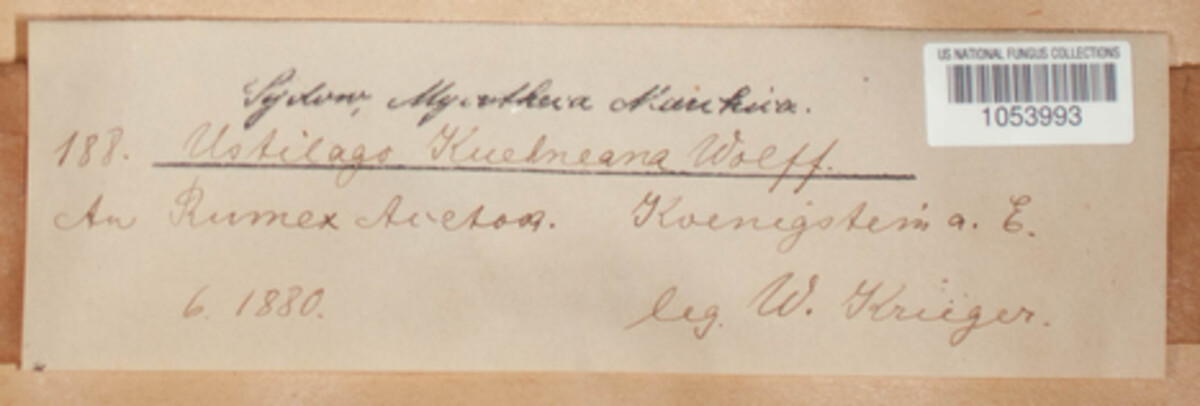 US NATIONAL FUNGUS COLLECTIONS
1053993
Sydow, Mycotheca Marchica.
188. Ustilago Kuehneana Wolff.
An Rumex Acetosa. Koenigstein a. E.
6. 1880. leg. W. Krieger.